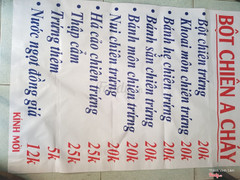 BỘT CHIÊN A CHÁY
• Bột chiên trứng 20k
• Khoai môn chiên trứng 20k
• Bánh hẹ chiên trứng 20k
• Bánh sắn chiên trứng 20k
• Bánh môn chiên trứng 20k
• Nui chiên trứng 20k
• Há cảo chiên trứng 25k
• Thập cẩm 25k
• Trứng thêm 5k
• Nước ngọt đồng giá 12k
KÍNH MỜI